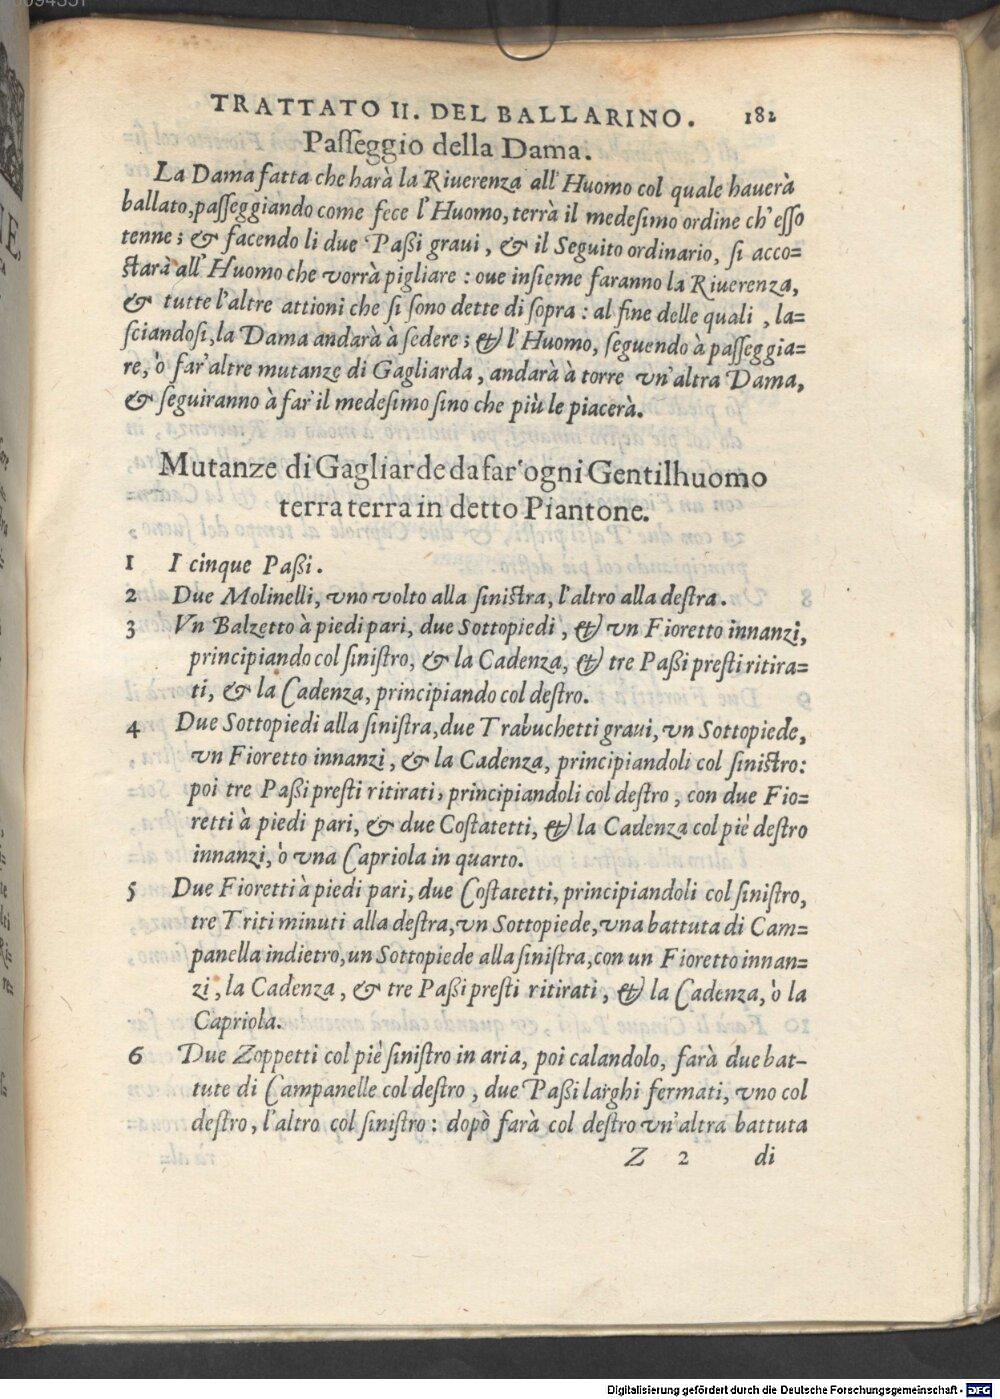 TRATTATO II. DEL BALLARINO. 182
Paſſeggio della Dama.
La Dama fatta che harà la Riuerenza all'Huomo col quale hauerà
ballato, paſſeggiando come fece l'Huomo, terrà il medeſimo ordine ch'eſſo
tenne; & facendo li due Paßi graui, & il Seguito ordinario, ſi acco=
ſtarà all'Huomo che vorrà pigliare: oue inſieme faranno la Riuerenza,
& tutte l'altre attioni che ſi ſono dette di ſopra: al fine delle quali, la=
ſciandoſi, la Dama andarà à ſedere; & l'Huomo, ſeguendo à paſſeggia=
re, ò far'altre mutanze di Gagliarda, andarà à torre vn'altra Dama,
& ſeguiranno à far il medeſimo ſino che più le piacerà.
Mutanze di Gagliarde da far'ogni Gentilhuomo
terra terra in detto Piantone.
1 I cinque Paßi.
2 Due Molinelli, vno volto alla ſiniſtra, l'altro alla deſtra.
3 Vn Balzetto à piedi pari, due Sottopiedi, & vn Fioretto innanzi,
principiando col ſiniſtro, & la Cadenza, & tre Paßi preſti ritira=
ti, & la Cadenza, principiando col deſtro.
4 Due Sottopiedi alla ſiniſtra, due Trabuchetti graui, vn Sottopiede,
vn Fioretto innanzi, & la Cadenza, principiandoli col ſiniſtro:
poi tre Paßi preſti ritirati, principiandoli col deſtro, con due Fio=
retti à piedi pari, & due Coſtatetti, & la Cadenza col piè deſtro
innanzi, ò vna Capriola in quarto.
5 Due Fioretti à piedi pari, due Coſtatetti, principiandoli col ſiniſtro,
tre Triti minuti alla deſtra, vn Sottopiede, vna battuta di Cam=
panella indietro, un Sottopiede alla ſiniſtra, con un Fioretto innan=
zi, la Cadenza, & tre Paßi preſti ritirati, & la Cadenza, ò la
Capriola.
6 Due Zoppetti col piè ſiniſtro in aria, poi calandolo, farà due bat-
tute di Campanelle col deſtro, due Paßi larghi fermati, vno col
deſtro, l'altro col ſiniſtro: dopò farà col deſtro vn'altra battuta
Z 2 di
Digitalisierung gefördert durch die Deutsche Forschungsgemeinschaft - DFG